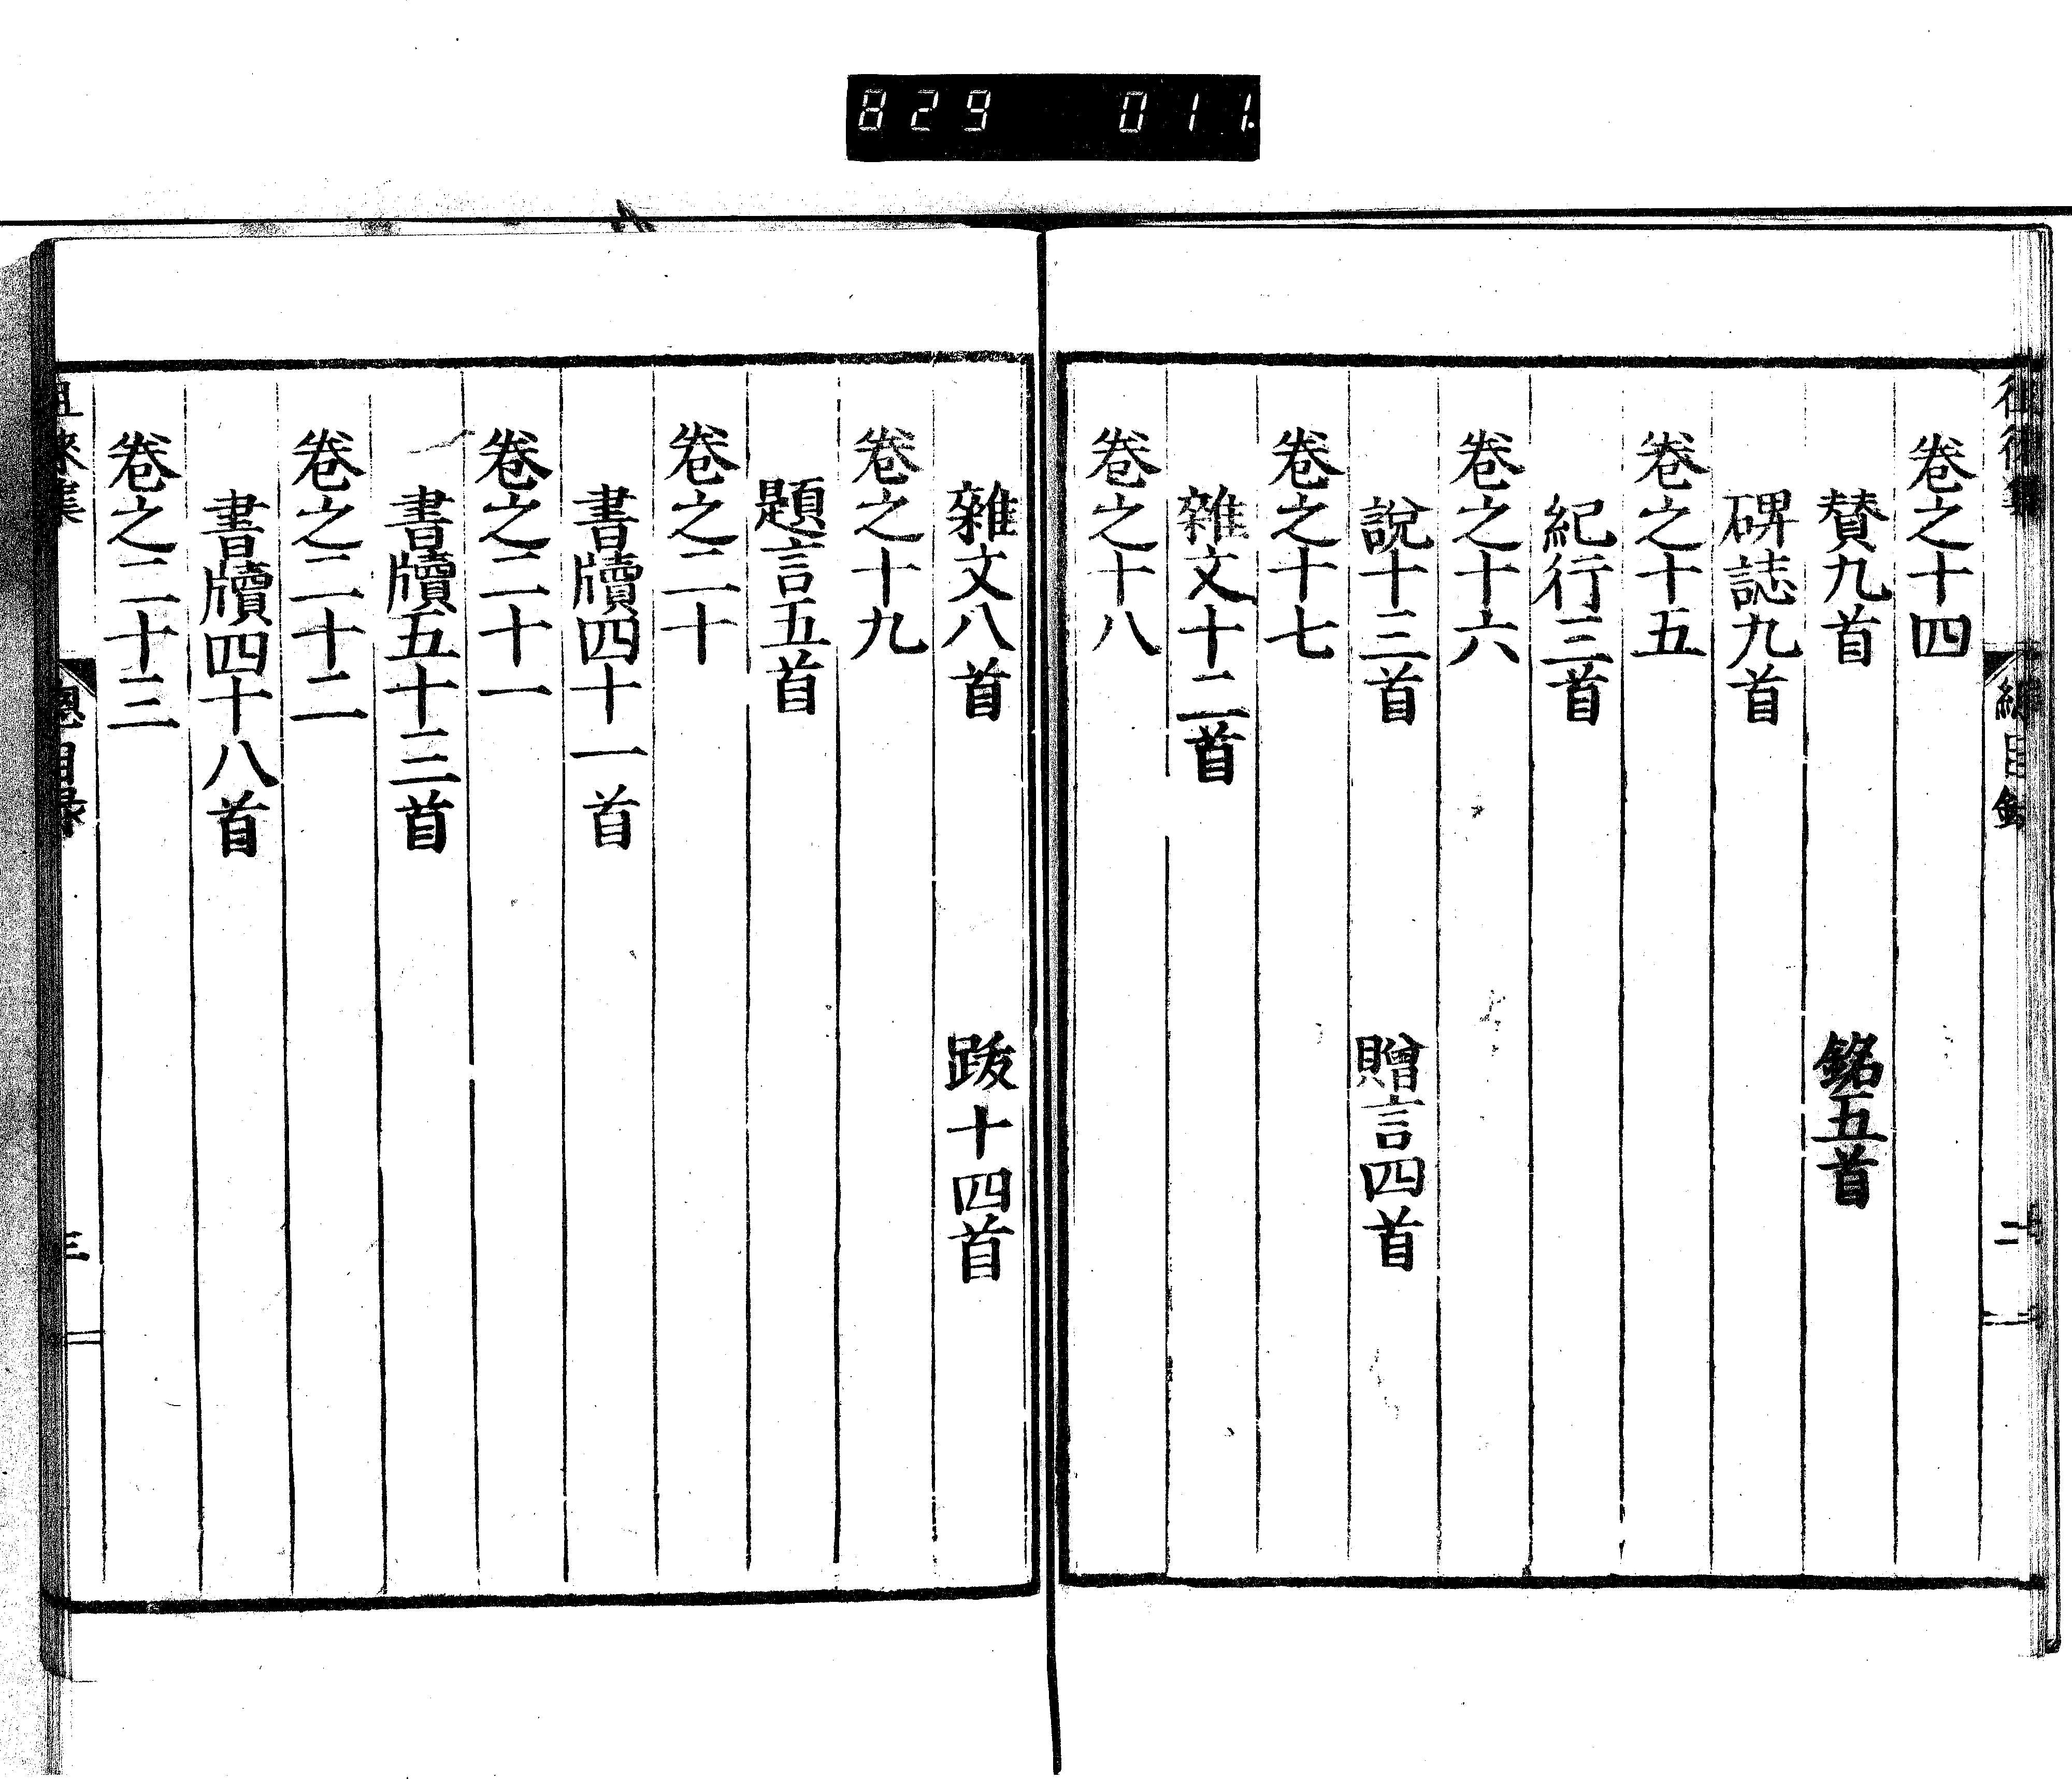 829 011.
卷之十四
賛九首 銘五首
碑誌九首
卷之十五
紀行三首
卷之十六
說十三首 贈言四首
卷之十七
雜文十二首
卷之十八
雜文八首 跋十四首
卷之十九
題言五首
卷之二十
書牘四十一首
卷之二十一
書牘五十三首
卷之二十二
書牘四十八首
卷之二十三
總目録 三